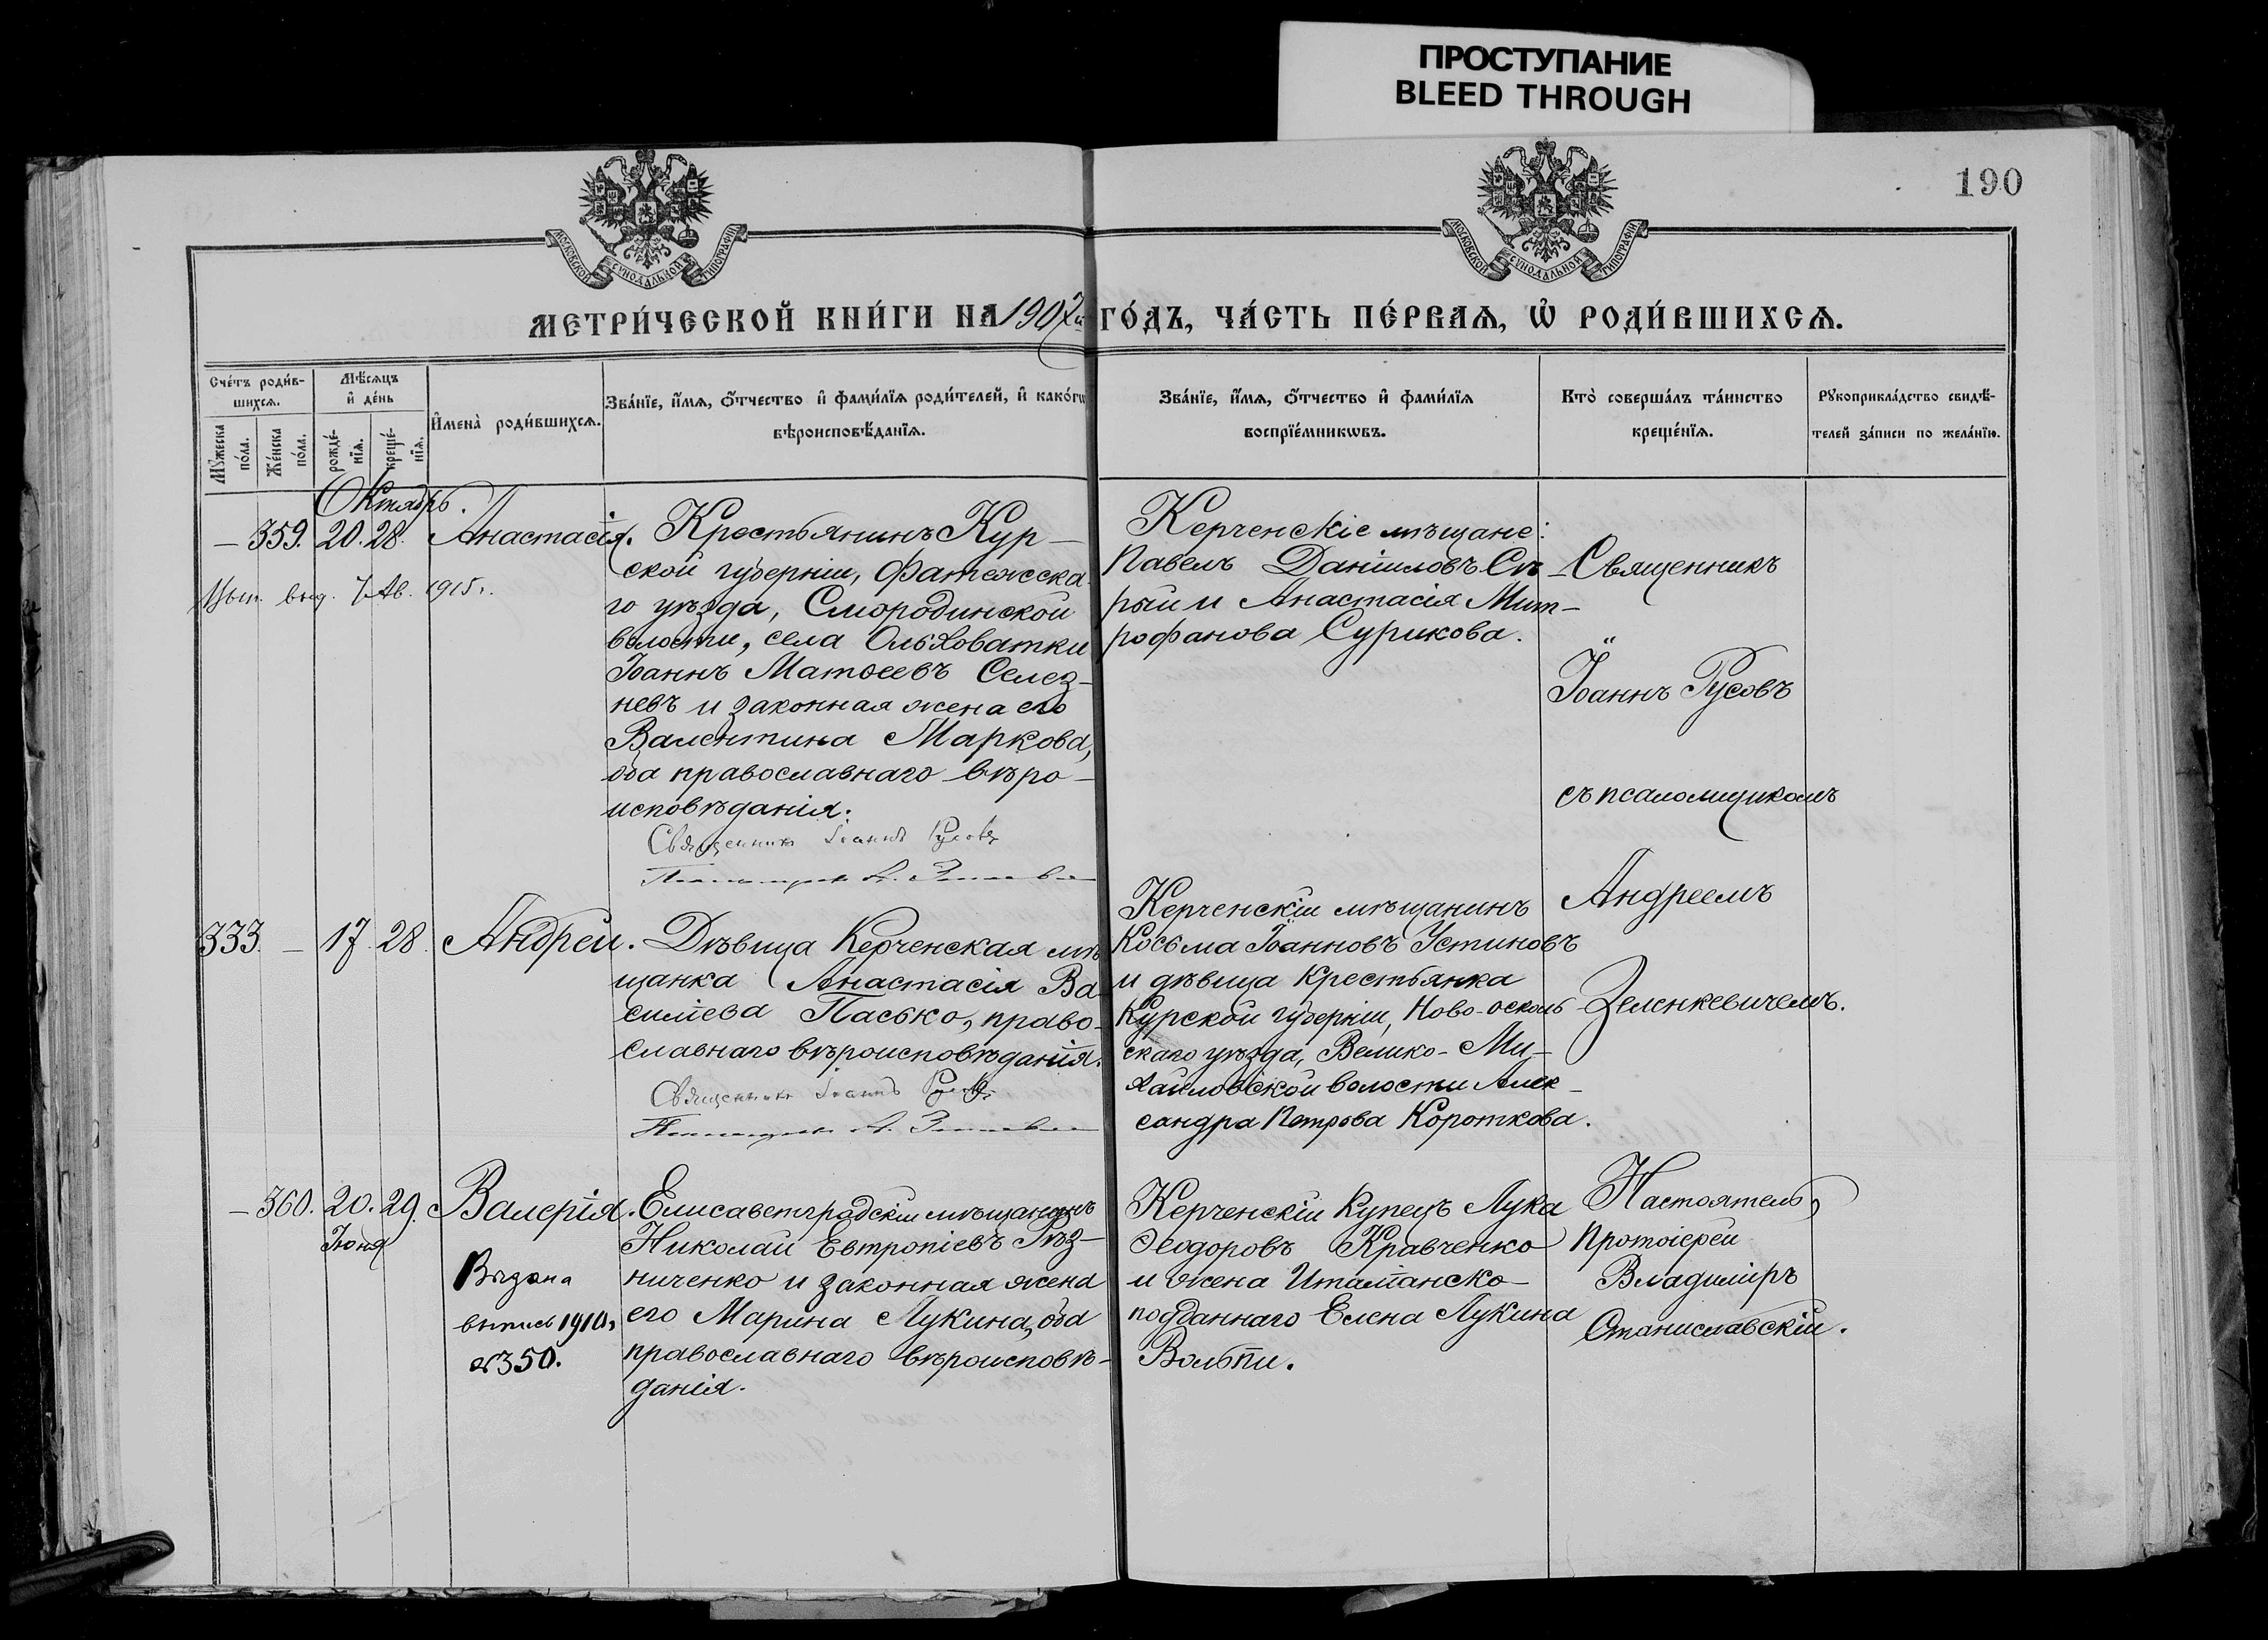 ПРОСТУПАНИЕ
BLEED THROUGH
190
МОСКОВСКОЙ СУНОДАЛЬНОЙ ТИПОГРАФІИ
МОСКОВСКОЙ СУНОДАЛЬНОЙ ТИПОГРАФІИ
МЕТРИ́ЧЕСКОЙ КНИ́ГИ НА 1907й ГО́ДЪ, ЧА́СТЬ ПЕ́РВАѦ, Ѡ҆ РОДИ́ВШИХСѦ.
Сче́тъ роди́в-
шихсѧ.
Мꙋ́жеска
по́ла.
Же́нска
по́ла.
Мѣ́сѧцъ
и҆ де́нь
рожде́-
нїѧ.
креще́-
нїѧ.
И҆мена̀ роди́вшихсѧ.
Зва́нїе, и҆́мѧ, ѻ҆́тчество и҆ фами́лїѧ роди́телей, и҆ како́гѡ
вѣроисповѣ́данїѧ.
Зва́нїе, и҆́мѧ, ѻ҆́тчество и҆ фами́лїѧ
воспрїе́мникѡвъ.
Кто̀ соверша́лъ та́инство
креще́нїѧ.
Рꙋкоприкла́дство свидѣ́-
телей за́писи по жела́нїю.
Октябрь.
— 359. 20. 28. Анастасія.
выд. 7 Ав. 1915г.
Крестьянинъ Кур-
ской губерніи, Фатежска-
го уѣзда, Смородинской
волости, села Ольховатки
Іоаннъ Матѳеевъ Селез-
невъ и законная жена его
Валентина Маркова,
оба православнаго вѣро-
исповѣданія.
Священникъ Іоаннъ Русовъ
Керченскіе мѣщане:
Павелъ Даніиловъ Сѣ-
рый и Анастасія Мит-
рофанова Сурикова.
Священникъ
Іоаннъ Русовъ
съ псаломщикомъ
Андреемъ
Зеленкевичемъ.
333. — 17. 28. Андрей.
Дѣвица Керченская мѣ-
щанка Анастасія Ва-
силіева Пасько, право-
славнаго вѣроисповѣданія.
Священникъ Іоаннъ Русовъ
Керченскій мѣщанинъ
Косьма Іоанновъ Устиновъ
и дѣвица крестьянка
Курской губерніи, Ново-осколь-
скаго уѣзда, Велико-Ми-
хайловской волости Алек-
сандра Петрова Короткова.
— 360. 20. 29. Валерія.
Іюня
Выдана
выпись 1910г.
№350.
Елисаветградскій мѣщанинъ
Николай Евтропіевъ Рѣз-
ниченко и законная жена
его Марина Лукина, оба
православнаго вѣроисповѣ-
данія.
Керченскій купецъ Лука
Ѳеодоровъ Кравченко
и жена Италіанско-
подданнаго Елена Лукина
Вольпи.
Настоятель,
Протоіерей
Владиміръ
Станиславскій.